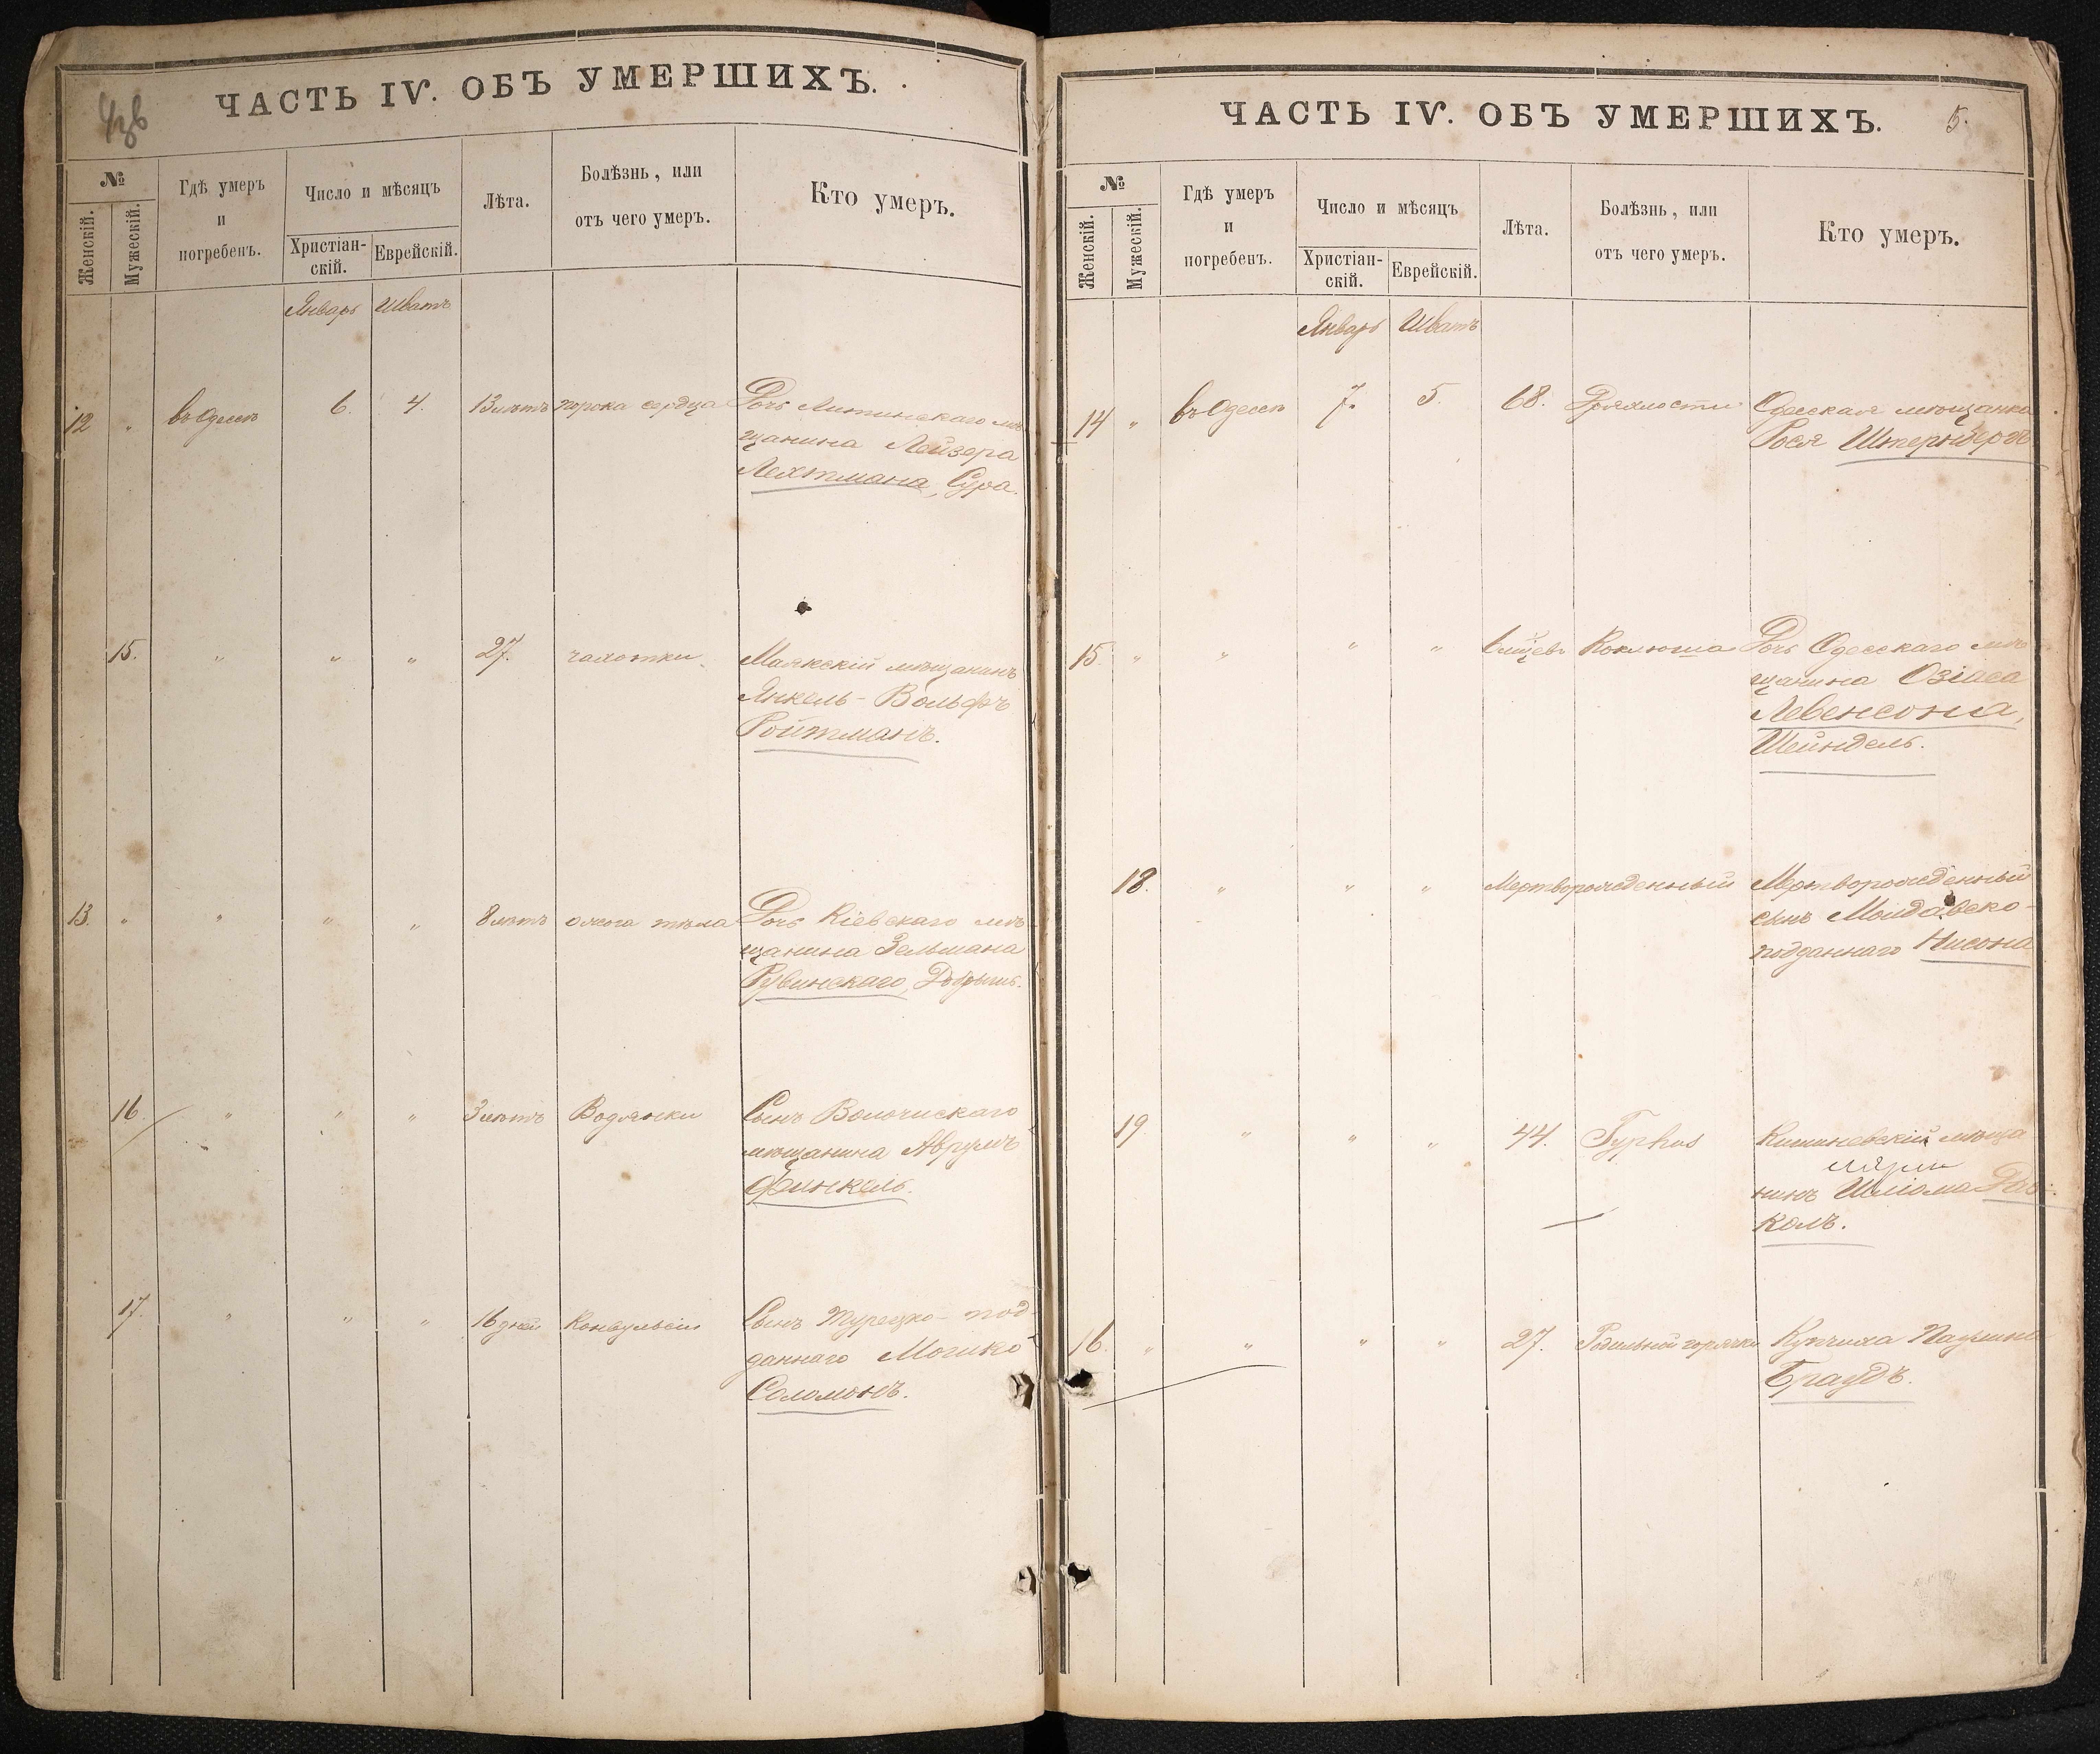 ЧАСТЬ IV. ОБЪ УМЕРШИХЪ.
№
Женскій.
Мужескій.
Гдѣ умеръ
и
погребенъ.
Число и мѣсяцъ
Христіан-
скій.
Еврейскій.
Лѣта.
Болѣзнь, или
отъ чего умеръ.
Кто умеръ.
Январь Шватъ
12 " въ Одессѣ 6. 4. 13 лѣтъ порока сердца Дочь Литинскаго мѣ
щанина Лейзера
Лехтмана, Сура.
15. " " " 27. чахотки Маякскій мѣщанинъ
Янкель-Вольфъ
Ройтманъ.
13. " " " " 8 лѣтъ ожога тѣла Дочь Кіевскаго мѣ
щанина Зельмана
Рувинскаго,
16. " " " 3 лѣтъ Водянки Сынъ Волочискаго
мѣщанина Аврумъ
Финкель.
17. " " " 16 дней Конвульсіи Сынъ Турецко-под
даннаго
Соломонъ.
ЧАСТЬ IV. ОБЪ УМЕРШИХЪ. 5.
№
Женскій.
Мужескій.
Гдѣ умеръ
и
погребенъ.
Число и мѣсяцъ
Христіан-
скій.
Еврейскій.
Лѣта.
Болѣзнь, или
отъ чего умеръ.
Кто умеръ.
Январь Шватъ
14 " въ Одессѣ 7. 5. 68. Дряхлости Одесская мѣщанка
Рося Штернбергъ
15. " " " " Коклюша Дочь Одесскаго мѣ
щанина Озіаса
Левенсона,
Шейндель.
18. " " " Мертворожденный Мертворожденный
сынъ Молдавско-
подданнаго Нисона
19 " " " 44. Typhus Кишиневскій мѣща
нинъ Шліома
колъ.
16. " " " " 27. Родильной горячки Купчиха
Браудъ.